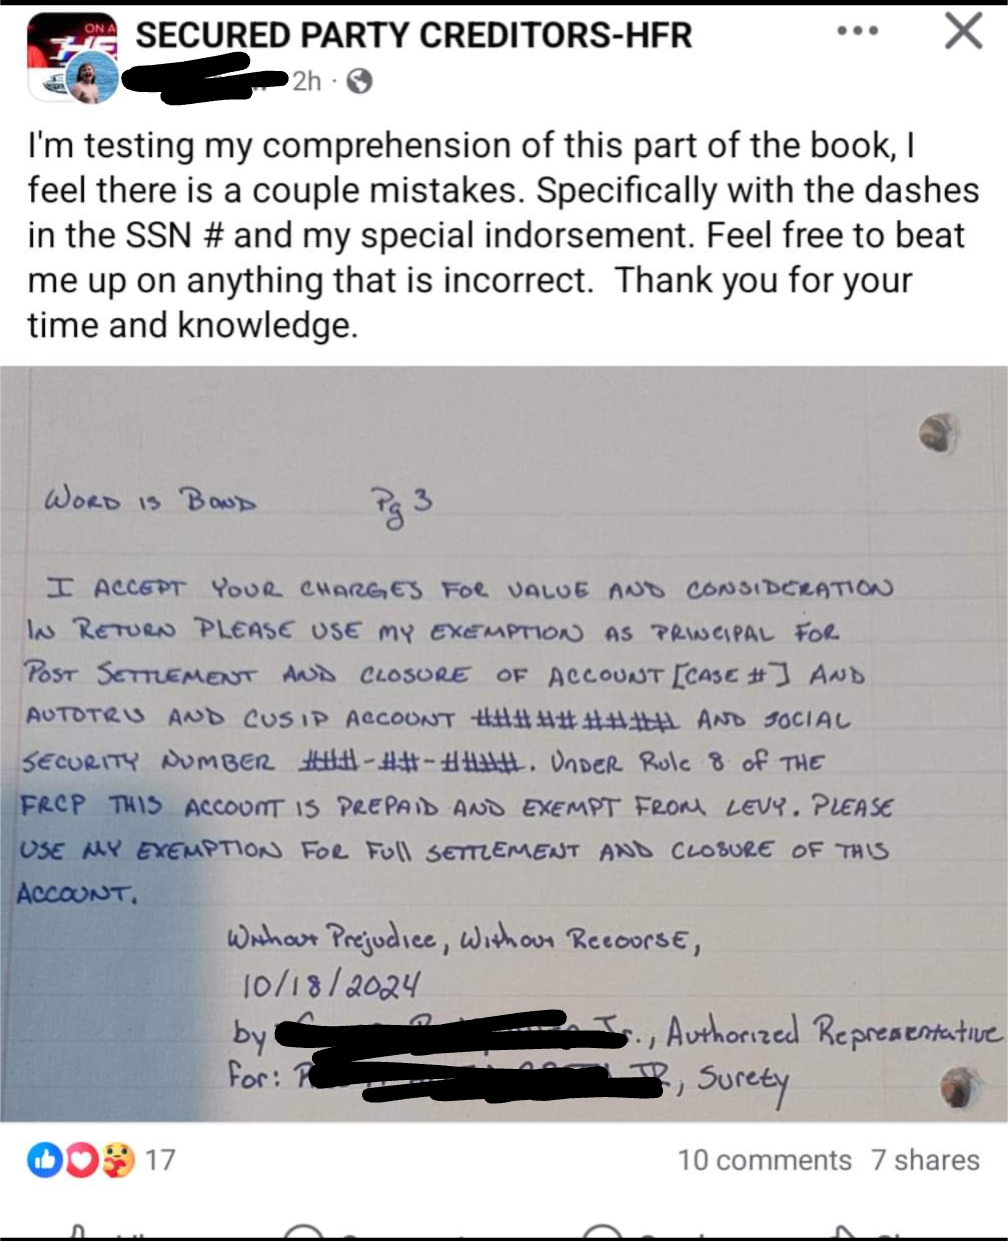 ON A
SECURED PARTY CREDITORS-HFR
2h
I'm testing my comprehension of this part of the book, I
feel there is a couple mistakes. Specifically with the dashes
in the SSN # and my special indorsement. Feel free to beat
me up on anything that is incorrect. Thank you for your
time and knowledge.
WORD IS BOND Pg 3
I ACCEPT YOUR CHARGES FOR VALUE AND CONSIDERATION
IN RETURN PLEASE USE MY EXEMPTION AS PRINCIPAL FOR
POST SETTLEMENT AND CLOSURE OF ACCOUNT [CASE #] AND
AUTOTRIS AND CUSIP ACCOUNT ######### AND SOCIAL
SECURITY NUMBER ###-##-####. UNDER Rule 8 of THE
FRCP THIS ACCOUNT IS PREPAID AND EXEMPT FROM LEVY. PLEASE
USE MY EXEMPTION FOR Full SETTLEMENT AND CLOSURE OF THIS
ACCOUNT.
Without Prejudice, Without Recourse,
10/18/2024
by Jr., Authorized Representative
For: JR, Surety
17
10 comments 7 shares